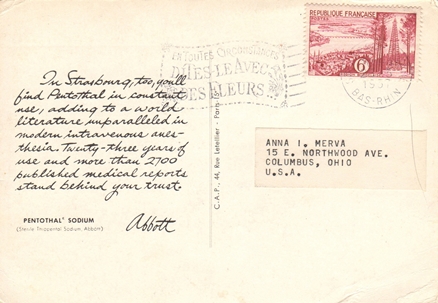 In Strasbourg, too, you'll
find Pentothal in constant
use, adding to a world
literature unparalleled in
modern intravenous anes-
thesia. Twenty-three years of
use and more than 2700
published medical reports
stand behind your trust.
Abbott
PENTOTHAL® SODIUM
(Sterile Thiopental Sodium, Abbott)
C.A.P., 44, Rue Letellier - Paris
EN TOUTES CIRCONSTANCES
DITES-LE AVEC
DES FLEURS
RÉPUBLIQUE FRANÇAISE
POSTES
6F
BAS-RHIN
ANNA I. MERVA
15 E. NORTHWOOD AVE.
COLUMBUS, OHIO
U.S.A.